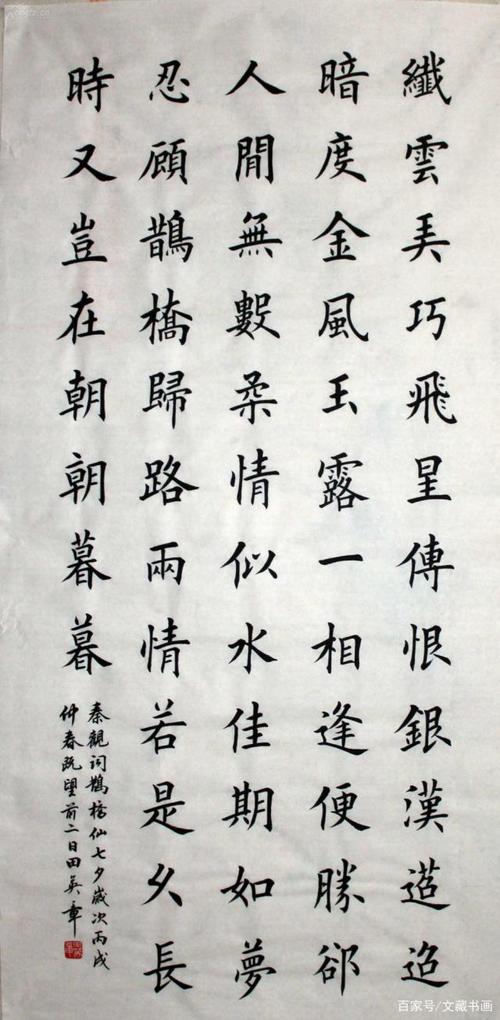 纖雲弄巧飛星傳恨銀漢迢迢
暗度金風玉露一相逢便勝郤
人間無數柔情似水佳期如夢
忍顧鵲橋歸路兩情若是久長
時又豈在朝朝暮暮
秦觀詞鵲橋仙七夕歲次丙戌
仲春既望前二日田英章
百家号/文藏书画